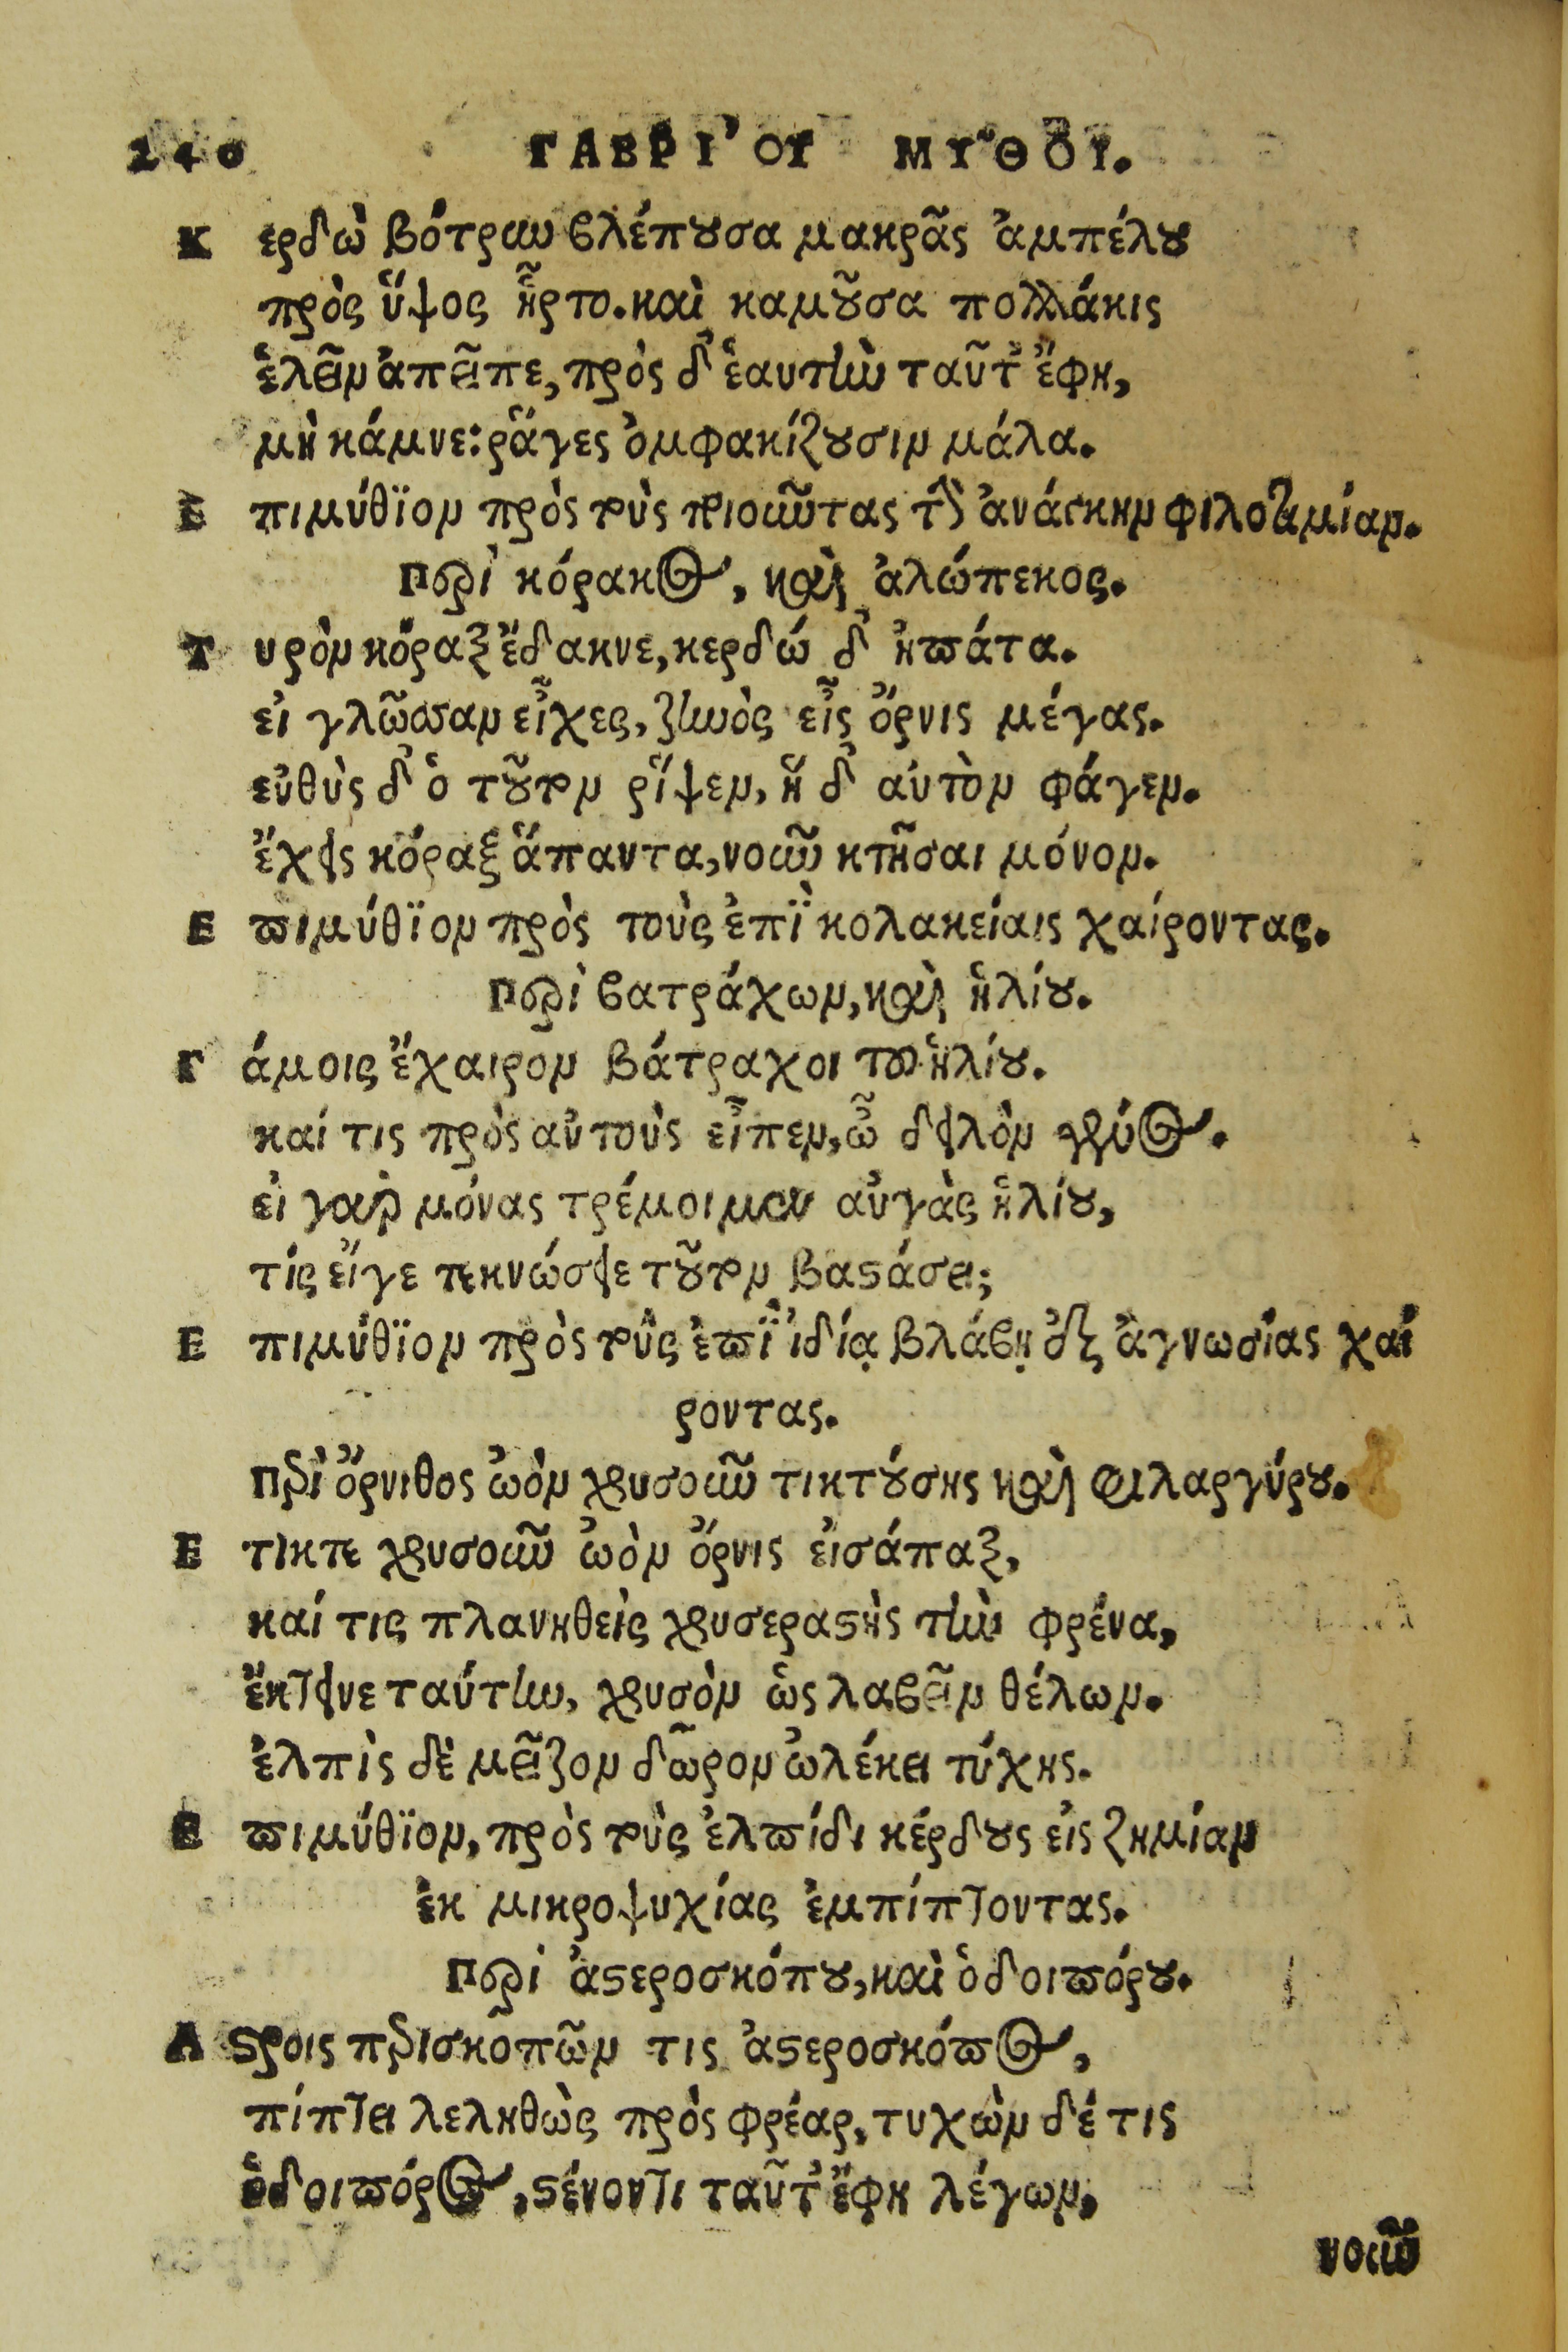 240 ΓΑΒΡΙ´ΟΥ ΜΥ῀ΘΟΙ.
Κερδὼ βότρων βλέπουσα μακρᾶς ἀμπέλου
πρὸς ὕψος ἦρτο. καὶ καμοῦσα πολλάκις
ἑλεῖν ἀπεῖπε, πρὸς δ' ἑαυτὴν ταῦτ' ἔφη,
μὴ κάμνε: ῥάγες ὀμφακίζουσιν μάλα.
Ἐπιμύθϊον πρὸς τοὺς ποιοῦντας τὴν ἀνάγκην φιλοτιμίαν.
Περὶ κόρακος, καὶ ἀλώπεκος.
Τυρὸν κόραξ ἔδακνε, κερδώ δ' ἠπάτα.
εἰ γλῶσσαν εἶχες, ζηνὸς εἶς ὄρνις μέγας.
εὐθὺς δ' ὁ τοῦτον ῥίψεν, ἥ δ' αὐτὸν φάγεν.
ἔχεις κόραξ ἅπαντα, νοῦν κτῆσαι μόνον.
Ἐπιμύθϊον πρὸς τοὺς ἐπῒ κολακείαις χαίροντας.
Περὶ βατράχων, καὶ ἡλίου.
Γάμοις ἔχαιρον βάτραχοι τοῦ ἡλίου.
καί τις πρὸς αὐτοὺς εἶπεν, ὦ δειλὸν γένος.
εἰ γαρ μόνας τρέμοιμεν αὐγὰς ἡλίου,
τίς εἴγε τεκνώσειε τοῦτον βαστάσει;
Ἐπιμύθϊον πρὸς τοὺς ἐπῒ ἰδίᾳ βλάβῃ ἐξ ἀγνωσίας χαί
ροντας.
Περὶ ὄρνιθος ὠὸν χρυσοῦν τικτούσης καὶ φιλαργύρου.
Ετικτε χρυσοῦν ὠὸν ὄρνις εἰσάπαξ,
καί τις πλανηθεὶς χρυσεραστὴς τὴν φρένα,
ἔκτεινε ταύτην, χρυσὸν ὡς λαβεῖν θέλων.
ἐλπὶς δὲ μεῖζον δῶρον ὠλέκει τύχης.
Ἐπιμύθϊον, πρὸς τοὺς ἐλπίδι κέρδους εἰς ζημίαν
ἐκ μικροψυχίας ἐμπίπτοντας.
Περὶ ἀστεροσκόπου, καὶ ὁδοιπόρου.
Αστροις περισκοπῶν τις ἀστεροσκόπος,
πίπτει λεληθὼς πρὸς φρέαρ, τυχὼν δέ τις
ὁδοιπόρος, στένοντι ταῦτ' ἔφη λέγων,
νοῦν